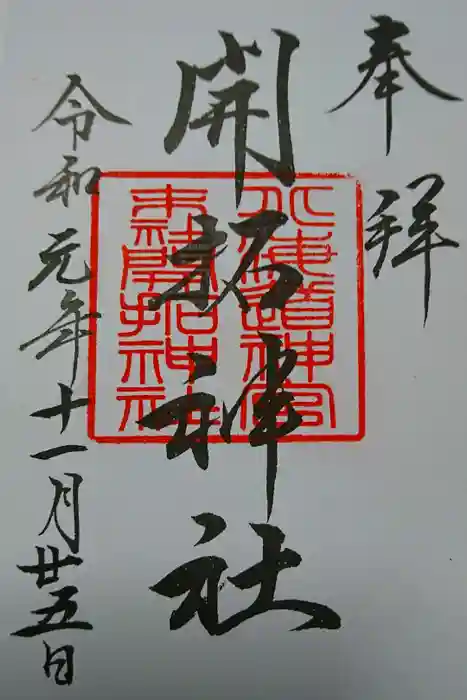 奉拝
開拓神社
北海道神宮
末社開拓神社
令和元年十一月廿五日